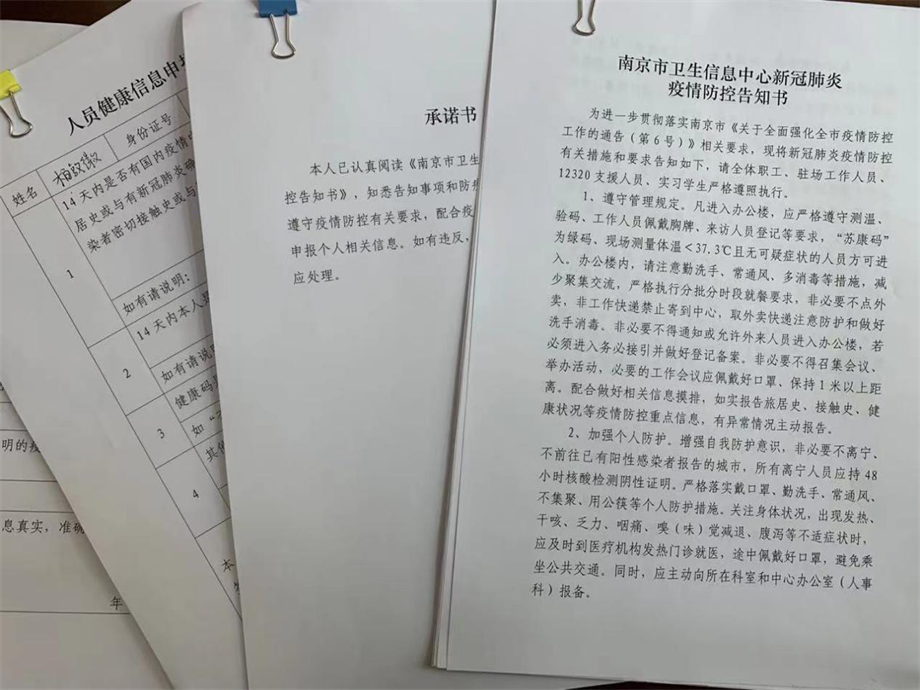 人员健康信息申
姓名
身份证号
14天内是否有国内疫情中
居史或与有新冠肺炎确
染者密切接触史或与
1
如有请说明:
14天内本人是
2
如有请说明
健康码
3
如“
其他
4
本
明的
息真实,准确
年
承诺书
本人已认真阅读《南京市卫生
控告知书》,知悉告知事项和防疫
遵守疫情防控有关要求,配合疫
申报个人相关信息。如有违反,
应处理。
南京市卫生信息中心新冠肺炎
疫情防控告知书
为进一步贯彻落实南京市《关于全面强化全市疫情防控
工作的通告(第6号)》相关要求,现将新冠肺炎疫情防控
有关措施和要求告知如下,请全体职工、驻场工作人员、
12320支援人员、实习学生严格遵照执行。
1、遵守管理规定。凡进入办公楼,应严格遵守测温、
验码、工作人员佩戴胸牌、来访人员登记等要求,“苏康码”
为绿码、现场测量体温<37.3℃且无可疑症状的人员方可进
入。办公楼内,请注意勤洗手、常通风、多消毒等措施,减
少聚集交流,严格执行分批分时段就餐要求,非必要不点外
卖,非工作快递禁止寄到中心,取外卖快递注意防护和做好
洗手消毒。非必要不得通知或允许外来人员进入办公楼,若
必须进入务必接引并做好登记备案。非必要不得召集会议、
举办活动,必要的工作会议应佩戴好口罩、保持1米以上距
离。配合做好相关信息摸排,如实报告旅居史、接触史、健
康状况等疫情防控重点信息,有异常情况主动报告。
2、加强个人防护。增强自我防护意识,非必要不离宁、
不前往已有阳性感染者报告的城市,所有离宁人员应持48
小时核酸检测阴性证明。严格落实戴口罩、勤洗手、常通风、
不集聚、用公筷等个人防护措施。关注身体状况,出现发热、
干咳、乏力、咽痛、嗅(味)觉减退、腹泻等不适症状时,
应及时到医疗机构发热门诊就医,途中佩戴好口罩,避免乘
坐公共交通。同时,应主动向所在科室和中心办公室(人事
科)报备。